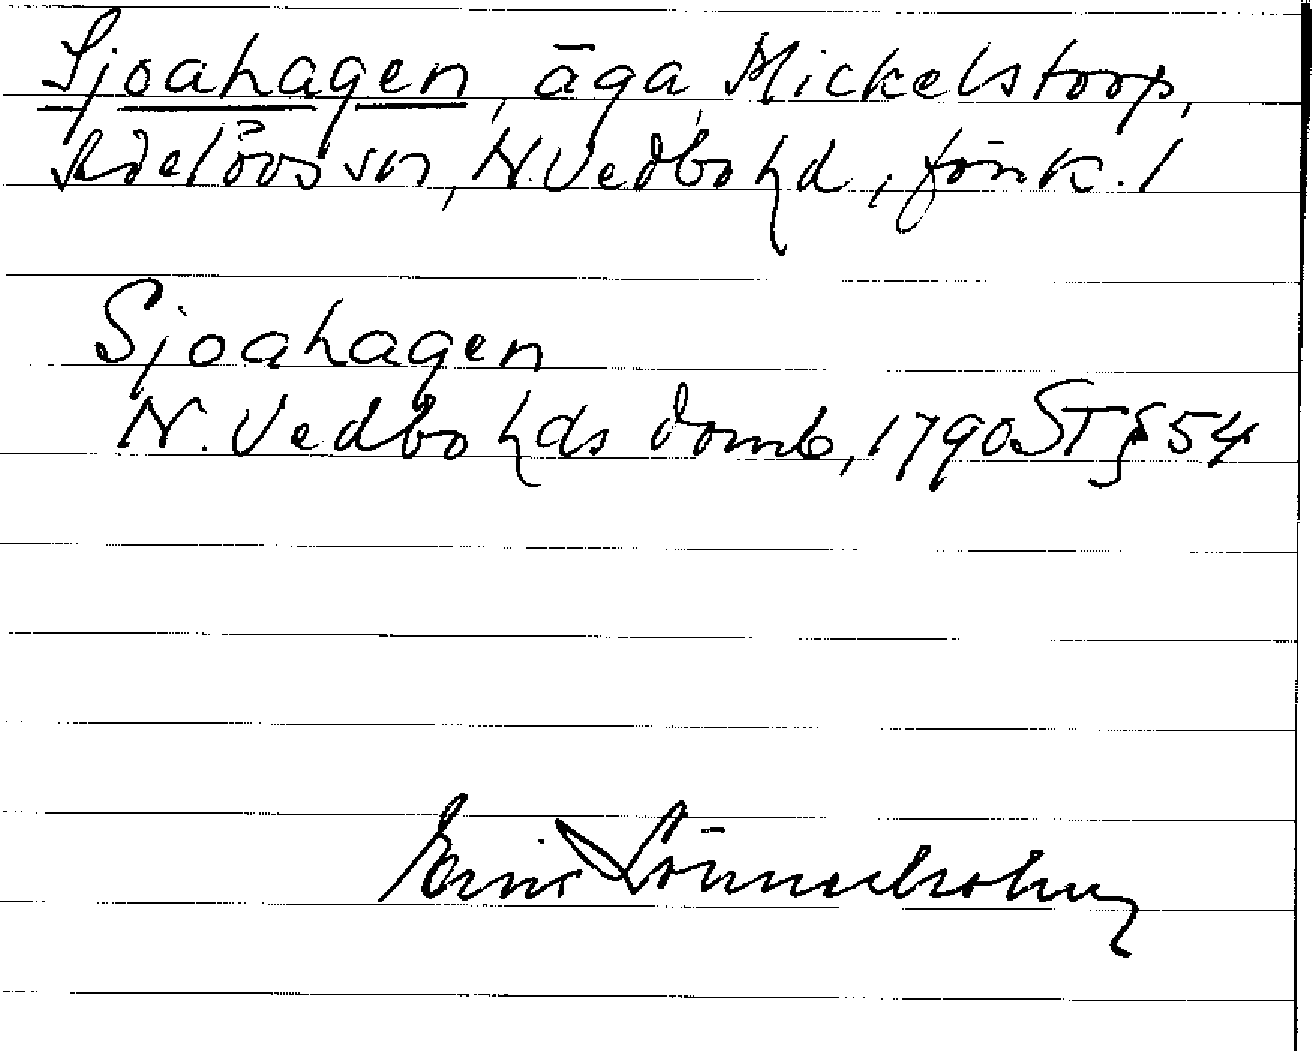 Sjoahagen, äga, Mickelstorp,
Adelövs sn, N. Vedbo hd, Jönk. l
Sjoahagen
N. Vedbo hds domb, 1790 ST § 54